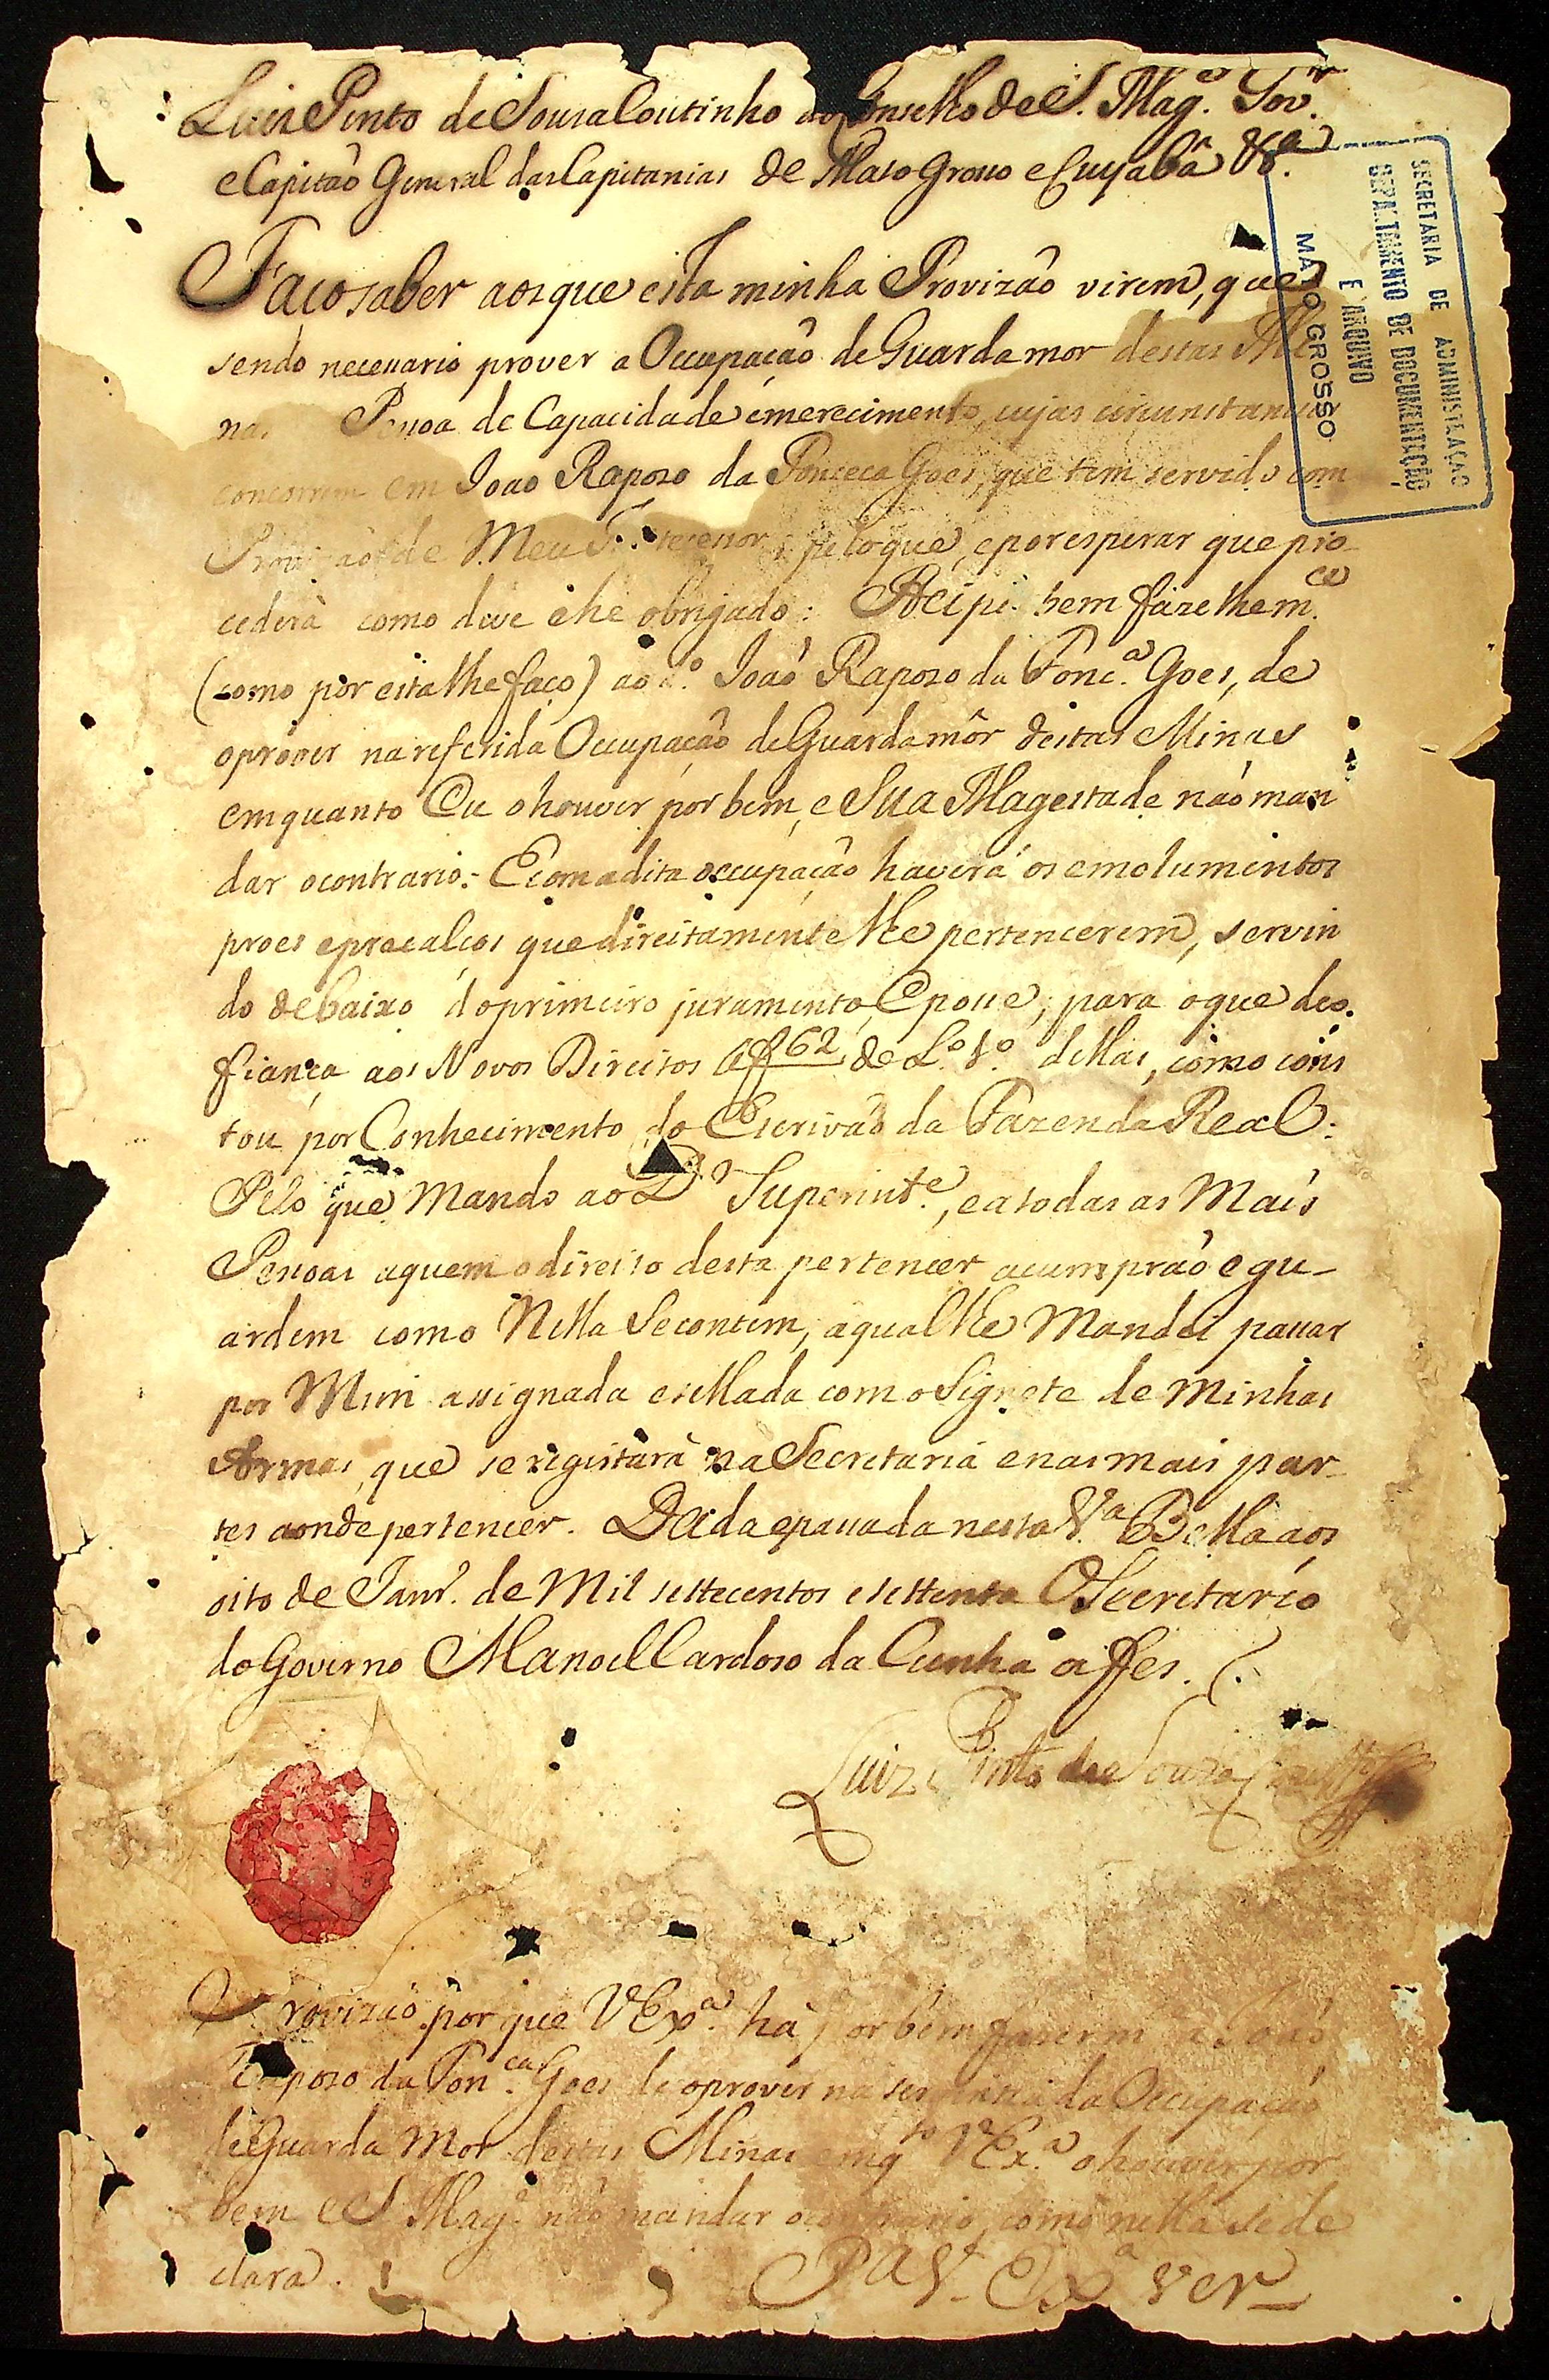 Luis Pinto de Sousa Coutinho do Conselho de S. Mag.e Gov.or
e Capitaõ General das Capitanias de Mato Grosso e Cuyabâ &.a
Faço saber aos que esta minha Provizaõ virem, que
sendo necessario prover a Occupaçaõ de Guarda mor destas Mi
nas Pessoa de Capacidade e merecimento, cujas circunstancias
concorrem em Joaõ Raposo da Fonceca Goes, que tem servido com
Provizaõ de Meu, pelo que, e por esperar que pro-
cederà como deve e he obrigado: Hei por bem fazer lhe m.ce
(como por esta lhe faço) ao d.o Joaõ Raposo da Fonc.a Goes, de
o prover na referida Occupaçaõ de Guarda môr destas Minas
emquanto Eu o houver por bem, e Sua Magestade naõ man
dar o contrario. E com a dita occupaçaõ haverá os emolumentos
proes e precalços que direitamente lhe pertencerem, servin
do debaixo do primeiro juramento, e posse, para o que deo
fiança aos Novos Direitos a f 62 de L.o dellas, como cons
tou por Conhecimento do Escrivaõ da Fazenda Real:
Pelo que Mando ao D.r Superint.e, e a todas as Mais
Pessoas a quem o direito desta pertencer a cumpraõ e gu-
ardem como Nella Se contem, a qual lhe Mandei passar
por Mim assignada e sellada com o Signete de Minhas
Armas, que se registarà na Secretaria e nas mais par-
tes aonde pertencer. Dada e passada nesta V.a Bella aos
oito de Janr.o de Mil settecentos e settenta O Secretario
do Governo Manoel Cardoso da Cunha a fes.
Luiz Pinto de Souza Coutt.o
Provizaõ por que V Ex.a há por bem fazer m a Joaõ
Raposo da Fon.ca Goes de o prover na Occupaçaõ
de Guarda Mor destas Minas emq.to V Ex.a o houver por
bem e S. Mag.e naõ mandar o contrario, como nella se de
clara.
P.a V. Ex.a ver
SECRETARIA DE ADMINISTRAÇÃO
DEPARTAMENTO DE DOCUMENTAÇÃO
E ARQUIVO
MATO GROSSO